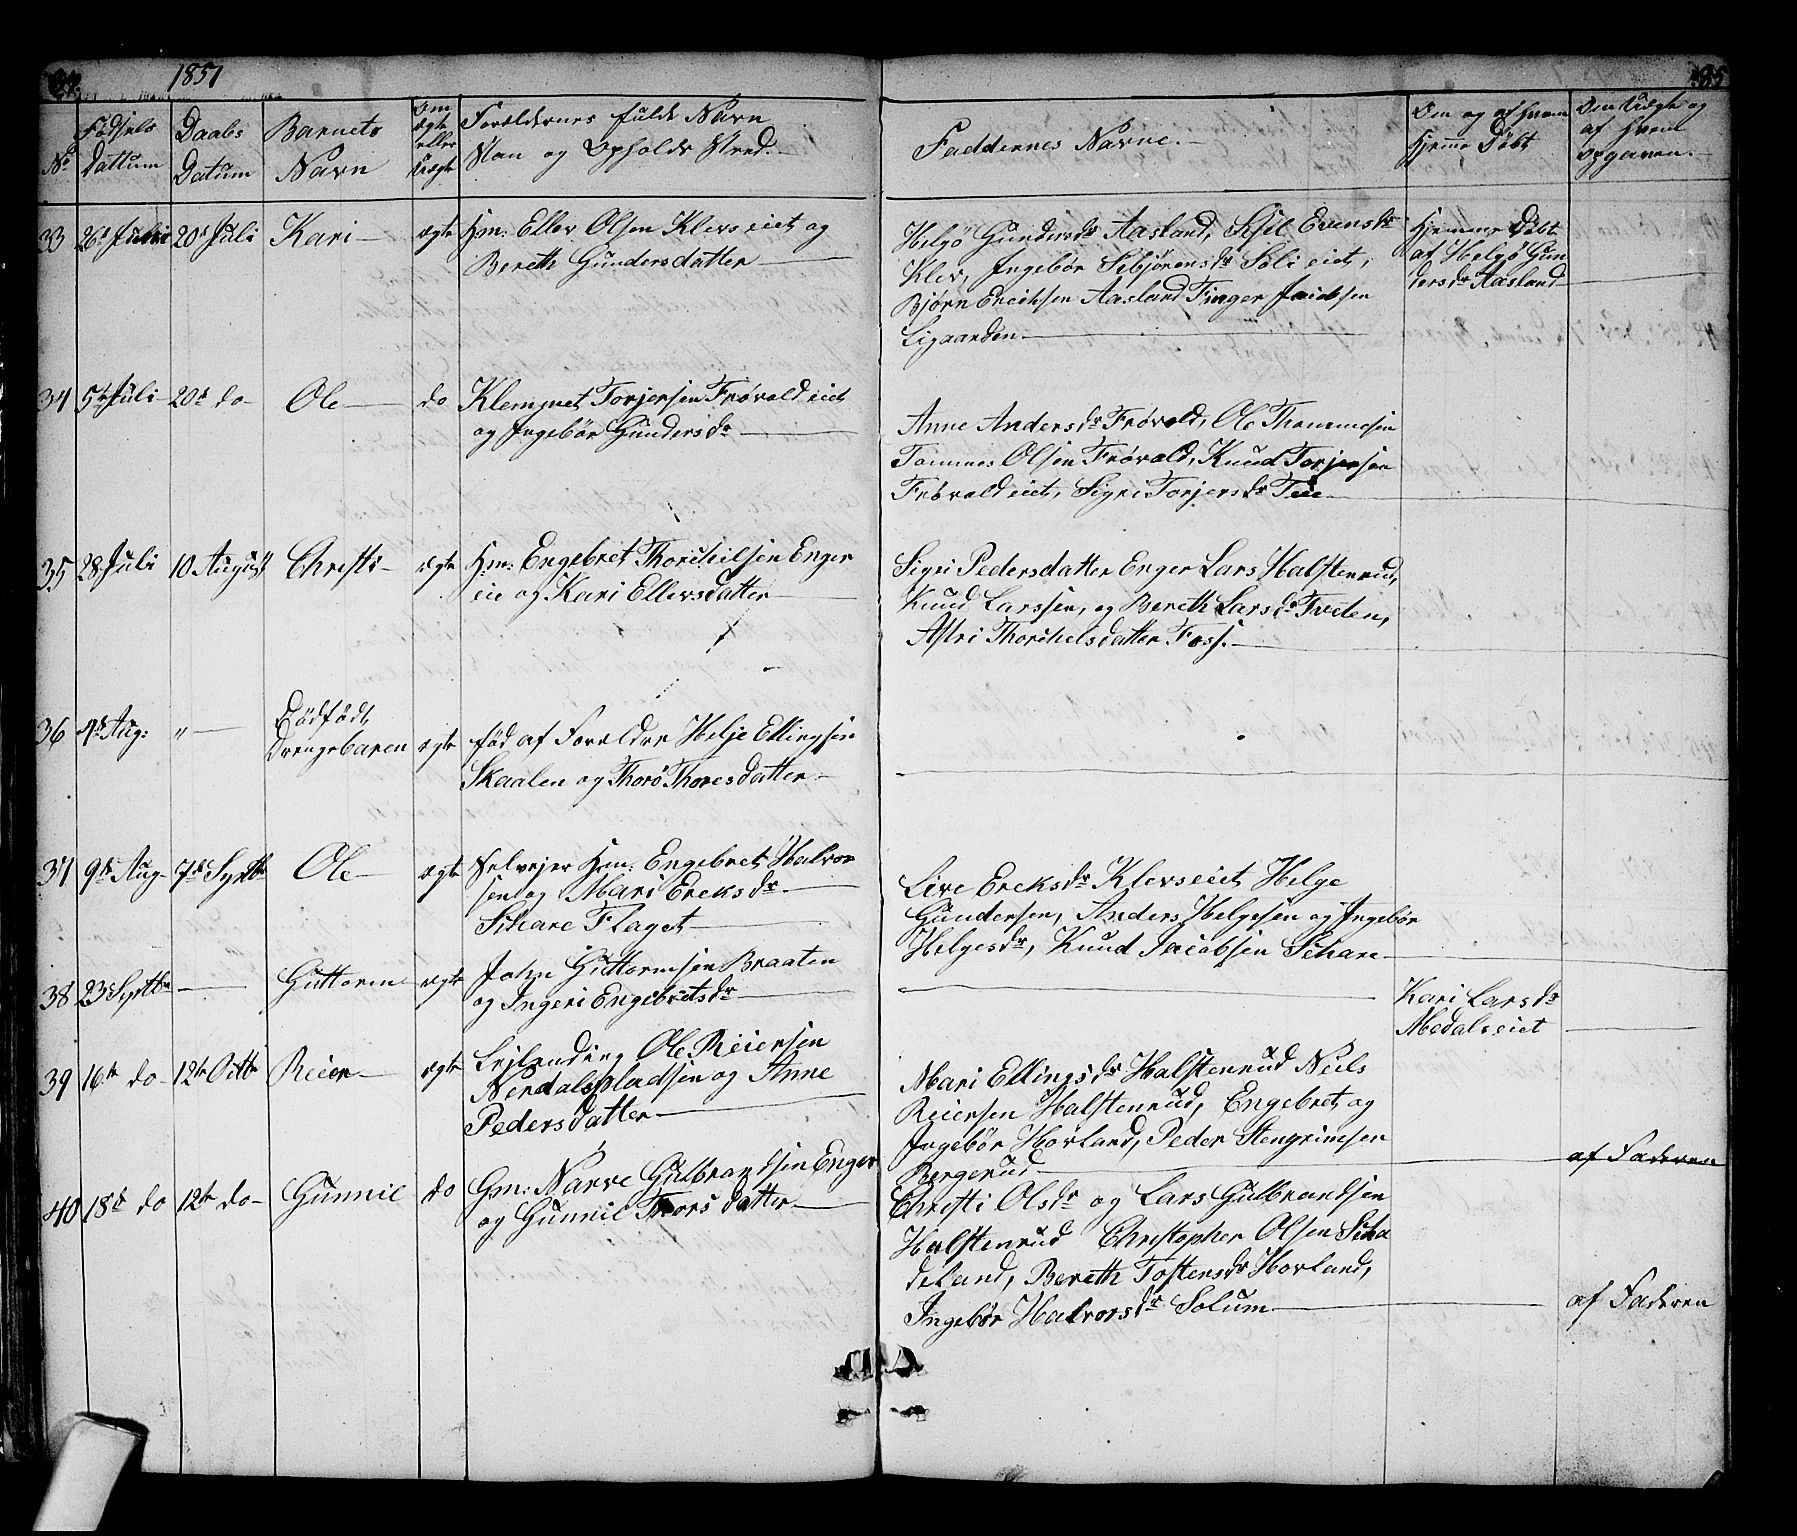 1851
No
Fødsels Dattum
Daabs Datum
Barnets Navn
Om ægte eller uægte
Forældernes fulde Navn
Stan og Opholds Sted.
Faddernes Navne.
Om og af hvem
hjemme Døbt
Om Uægte og
af hvem
opgaven.
33 26d Juli 20d Juli Kari ægte Hm: Ellev Olsen Klevseiet og
Bereth Gundersdatter
Helgö Gundersdr Aasland, Kjil Evensdr
Klev, Ingebör Sebjörensdr Solieiet,
Bjørn Ericksen Aasland Finger Jacobsen
Ligaarden
Hjemme Döbt
af Helgö Gun
dersdr Aasland
34 5te Juli 20d do Ole do Klemmet Torjersen Frövold eiet
og Ingebör Gundersdr
Anne Andersdr Frövold, Ole Thommesen
Tommes Olsen Frövold, Knud Torjersen
Frövoldeiet, Sigri Torjersdr Tiie
35 28 Juli 10 August Christi ægte Hm: Engebret Thorchilsen Enger
eie og Kari Ellevsdatter
Sigri Pedersdatter Enger Lars Halstenrud,
Knud Larssen, og Bereth Larsdr Tveten,
Astri Thorchelsdatter Foss.
36 4d Aug: " Dödfödt
Drengebaren ægte föd af Forælder Helje Ellingsen
Skaalen og Thorö Thoresdatter
37 9de Aug 7de Septbr Ole ægte Selvejer Hm: Engebret Halvor
sen og Mari Ereksdr
Schare Flaget
Live Ereksdr Klevseiet Helge
Gundersen, Anders Helgesen og Ingebör
Helgesdr, Knud Jacobsen Schare
38 23 Septbr Guttorm ægte John Guttormsen Braaten
og Ingeri Engebretsdr
Kari Larsdr
Modalseiet
39 16te do 12te Octbr Reier ægte Leilending Ole Reiersen
Nerdalspladsen og Anne
Pedersdatter
Mari Ellingsdr Halstenrud Neils
Reiersen Halstenrud, Engebret og
Ingebör Hovland, Peder Stengrimsen
Bergerud
af Faderen
40 18d do 12te do Gunnil do Gm: Narve Gulbrandsen Enger
og Gunnil Thorsdatter
Christi Olsdr og Lars Gulbrandsen
Halstenrud Christopher Olsen Scha
deland, Bereth Tostensdr Hovland,
Ingebör Halvorsdr Solum
af Faderen